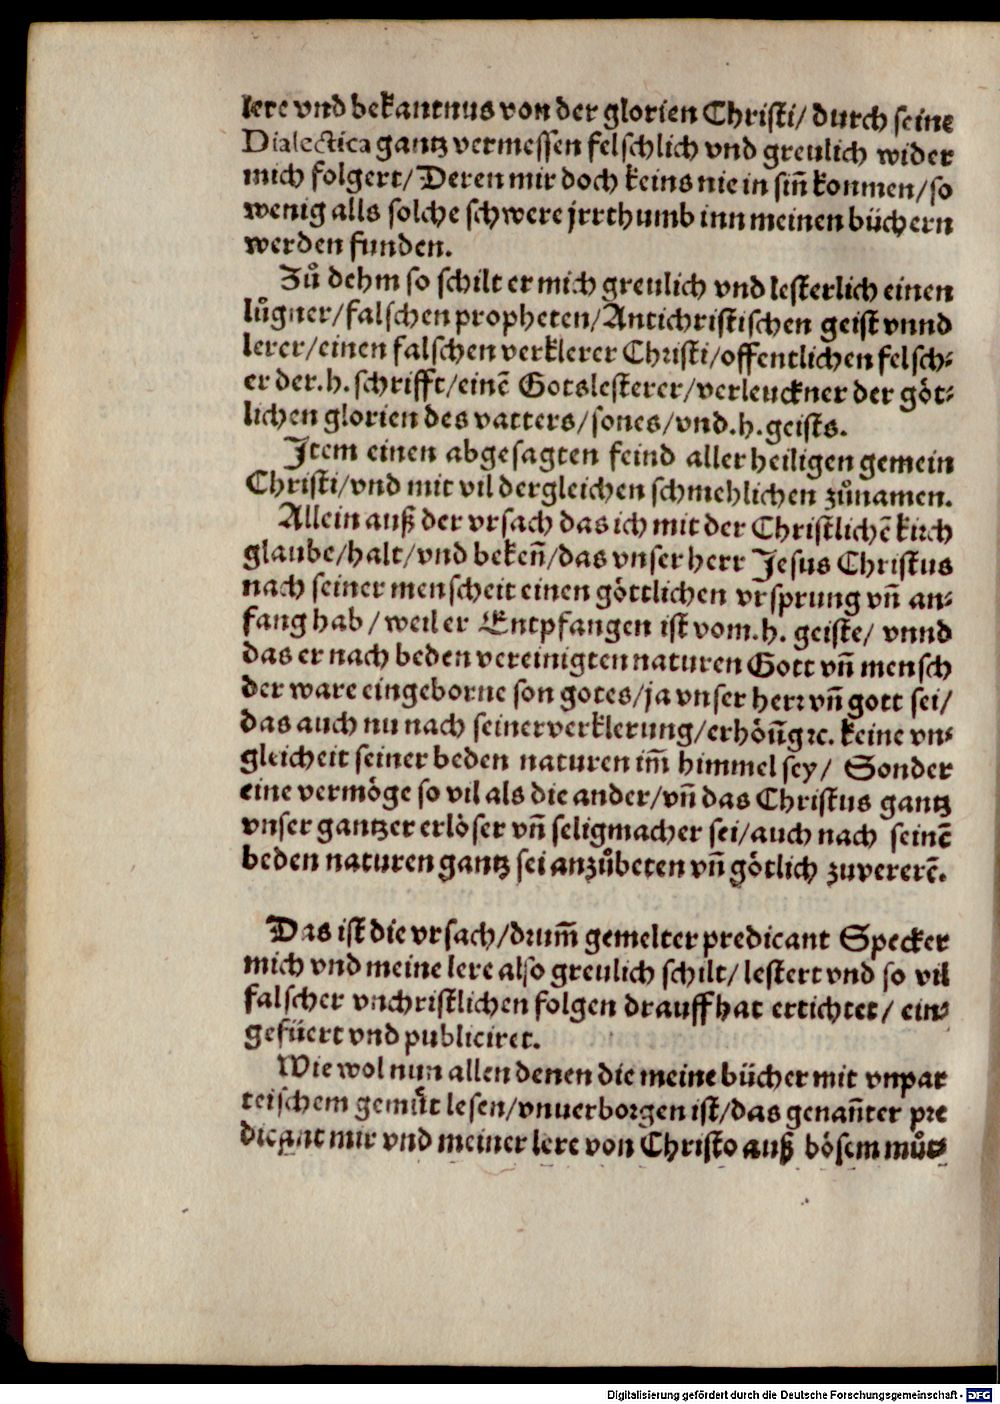 lere vnd bekantnus von der glorien Christi/ durch seine
Dialectica gantz vermessen felschlich vnd greulich wider
mich folgert/ Deren mir doch keins nie in siñ konmen/ so
wenig alls solche schwere jrrthumb inn meinen büchern
werden funden.
Zů dehm so schilt er mich greulich vnd lesterlich einen
lůgner/ falschen propheten/ Antichristischen geist vnnd
lerer/ einen falschen verklerer Christi/ offentlichen felsch⸗
er der .h. schrifft/ einẽ Gotslesterer/ verleuckner der göt⸗
lichen glorien des vatters/ sones/ vnd .h. geists.
Jtem einen abgesagten feind aller heiligen gemein
Christi/ vnd mit vil dergleichen schmehlichen zůnamen.
Allein auß der vrsach das ich mit der Christlichẽ kirch
glaube/ halt/ vnd bekeñ/ das vnser herr Jesus Christus
nach seiner menscheit einen göttlichen vrsprung vñ an⸗
fang hab/ weil er Entpfangen ist vom .h. geiste/ vnnd
das er nach beden vereinigten naturen Gott vñ mensch
der ware eingeborne son gotes/ ja vnser herꝛ vñ gott sei/
das auch nu nach seiner verklerung/ erhöũg ꝛc. keine vn⸗
gleicheit seiner beden naturen im̃ himmel sey/ Sonder
eine vermöge so vil als die ander/ vñ das Christus gantz
vnser gantzer erlöser vñ seligmacher sei/ auch nach seinẽ
beden naturen gantz sei anzůbeten vñ götlich zuvererẽ.
Das ist die vrsach/ drum̃ gemelter predicant Specker
mich vnd meine lere also greulich schilt/ lestert vnd so vil
falscher vnchristlichen folgen drauff hat ertichtet/ ein⸗
gefüert vnd publiciret.
Wie wol nun allen denen die meine bücher mit vnpar
teischem gemůt lesen/ vnuerborgen ist/ das genañter pre
dicant mir vnd meiner lere von Christo auß bösem můt⸗
Digitalisierung gefördert durch die Deutsche Forschungsgemeinschaft - DFG